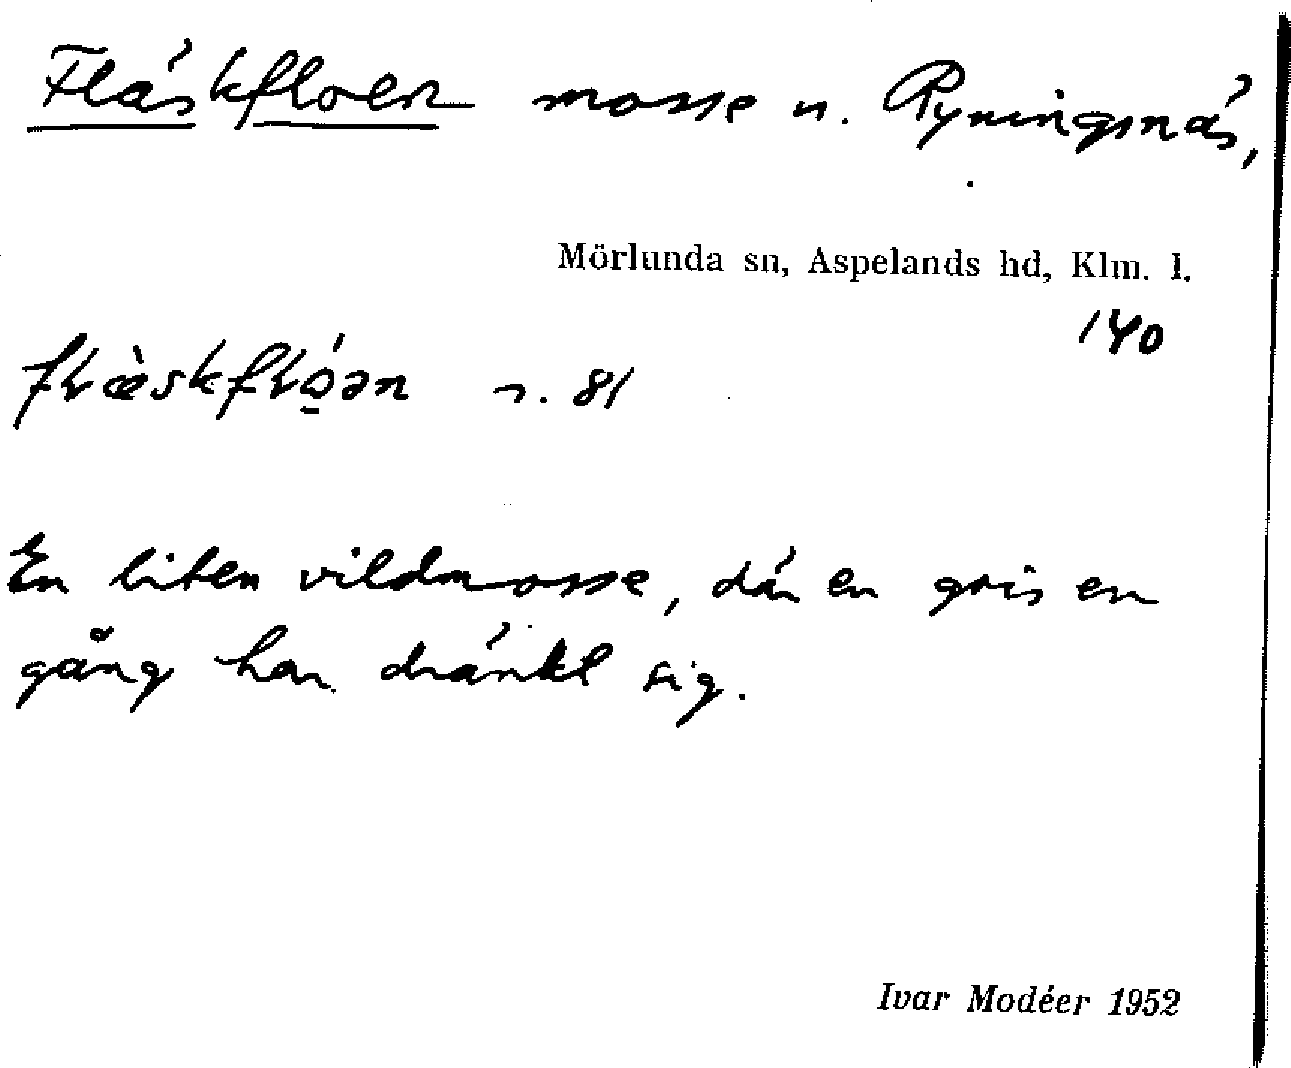 Fläskfloen mosse n. Ryningsnäs,
Mörlunda sn, Aspelands hd, Klm. l.
140
flæ̀skflóən n. 81
En liten vildmosse, där en gris en
gång har dränkt sig.
Ivar Modéer 1952